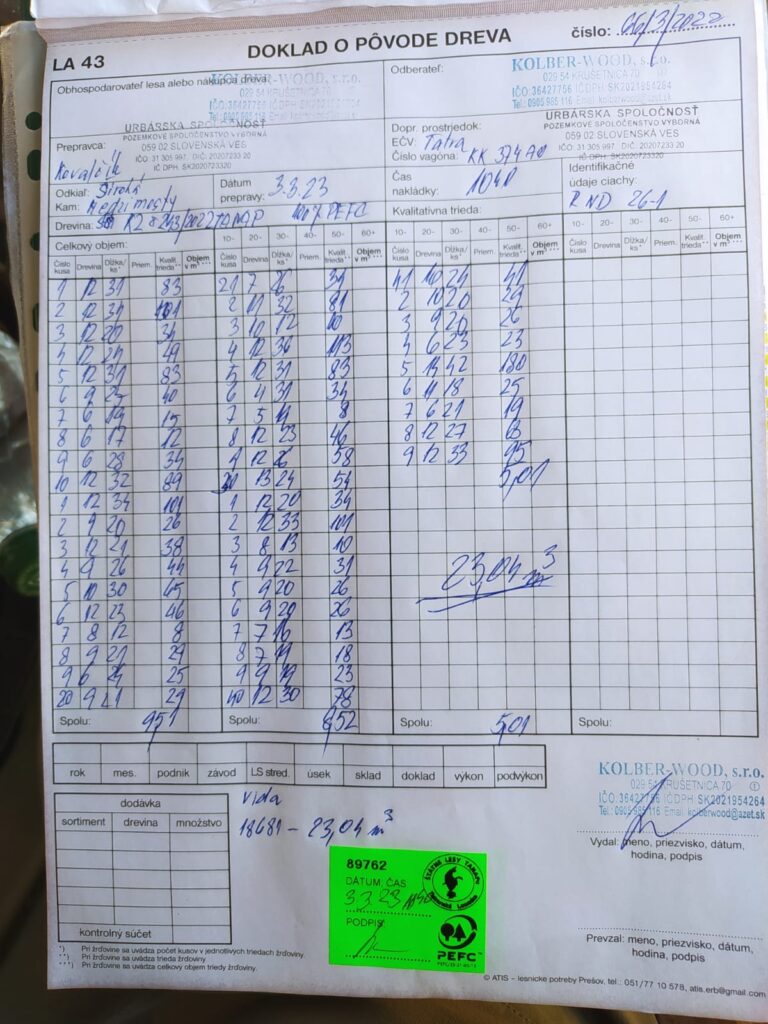 LA 43
DOKLAD O PÔVODE DREVA
číslo: 66/3/2022
Obhospodarovateľ lesa alebo nákupca dreva
KOLBER-WOOD, s.r.o.
029 54 KRUŠETNICA 70
IČO:36427756 IČDPH: SK2021954264
Odberateľ:
KOLBER-WOOD, s.r.o.
029 54 KRUŠETNICA 70
IČO:36427756 IČDPH: SK2021954264
Tel.: 0905 985 116 Email: kolberwood@azet.sk
URBÁRSKA SPOLOČNOSŤ
POZEMKOVÉ SPOLOČENSTVO VÝBORNÁ
059 02 SLOVENSKÁ VES
IČO: 31 305 997, DIČ: 2020723320
IČ DPH: SK2020723320
URBÁRSKA SPOLOČNOSŤ
POZEMKOVÉ SPOLOČENSTVO VÝBORNÁ
059 02 SLOVENSKÁ VES
IČO: 31 305 997, DIČ: 2020723320
IČ DPH: SK2020723320
Prepravca:
Kovalčík
Dopr. prostriedok:
EČV: Tatra
Číslo vagóna: KK 374 AO
Odkiaľ: Široká
Kam:
Dátum prepravy: 3.3.23
Čas nakládky: 1040
Identifikačné údaje ciachy:
R ND 26-1
Drevina: TANAP 100% PEFC
Kvalitatívna trieda:
Celkový objem:
10- 20- 30- 40- 50- 60+ 10- 20- 30- 40- 50- 60+ 10- 20- 30- 40- 50- 60+
Číslo kusa Drevina Dĺžka/ks* Priem. Kvalit. trieda** Objem v m³*** Číslo kusa Drevina Dĺžka/ks* Priem. Kvalit. trieda** Objem v m³*** Číslo kusa Drevina Dĺžka/ks* Priem. Kvalit. trieda** Objem v m³*** Číslo kusa Drevina Dĺžka/ks* Priem. Kvalit. trieda** Objem v m³***
1 12 31 83 21 7 26 34 41 10 24 41
2 12 34 101 2 11 32 81 2 10 20 29
3 12 20 34 3 10 12 10 3 9 20 26
4 12 24 49 4 12 36 113 4 6 23 23
5 12 31 83 5 12 31 83 5 13 42 180
6 9 25 40 6 4 31 34 6 11 18 25
7 6 19 15 7 5 14 8 7 6 21 19
8 6 17 12 8 12 23 46 8 12 27 63
9 6 28 34 12 26 58 9 12 33 95
10 12 32 89 30 13 24 54 5,01
1 12 34 101 1 12 20 34
2 9 20 26 2 12 33 101
3 12 21 38 3 8 13 10
4 9 26 44 4 9 22 31 23,04 m³
5 10 30 65 5 9 20 26
6 12 23 46 6 9 20 26
7 8 12 8 7 7 16 13
8 9 21 29 8 7 19 18
9 6 24 25 9 9 19 23
20 9 21 29 40 12 30 78
Spolu: 9,51 Spolu: 8,52 Spolu: 5,01 Spolu:
rok mes. podnik závod LS stred. úsek sklad doklad výkon podvýkon
KOLBER-WOOD, s.r.o.
029 54 KRUŠETNICA 70
IČO:36427756 IČDPH: SK2021954264
Tel.: 0905 985 116 Email: kolberwood@azet.sk
dodávka
sortiment drevina množstvo
kontrolný súčet
18681 - 23,04 m³
Vydal: meno, priezvisko, dátum,
hodina, podpis
89762
DÁTUM, ČAS
3.3.23
PODPIS
ŠTÁTNE LESY TANAPU
PEFC
Prevzal: meno, priezvisko, dátum,
hodina, podpis
*) Pri žrďovine sa uvádza počet kusov v jednotlivých triedach žrďoviny.
**) Pri žrďovine sa uvádza trieda žrďoviny
***) Pri žrďovine sa uvádza celkový objem triedy žrďoviny.
© ATIS – lesnícke potreby Prešov, tel.: 051/77 10 578, atis.erb@gmail.com